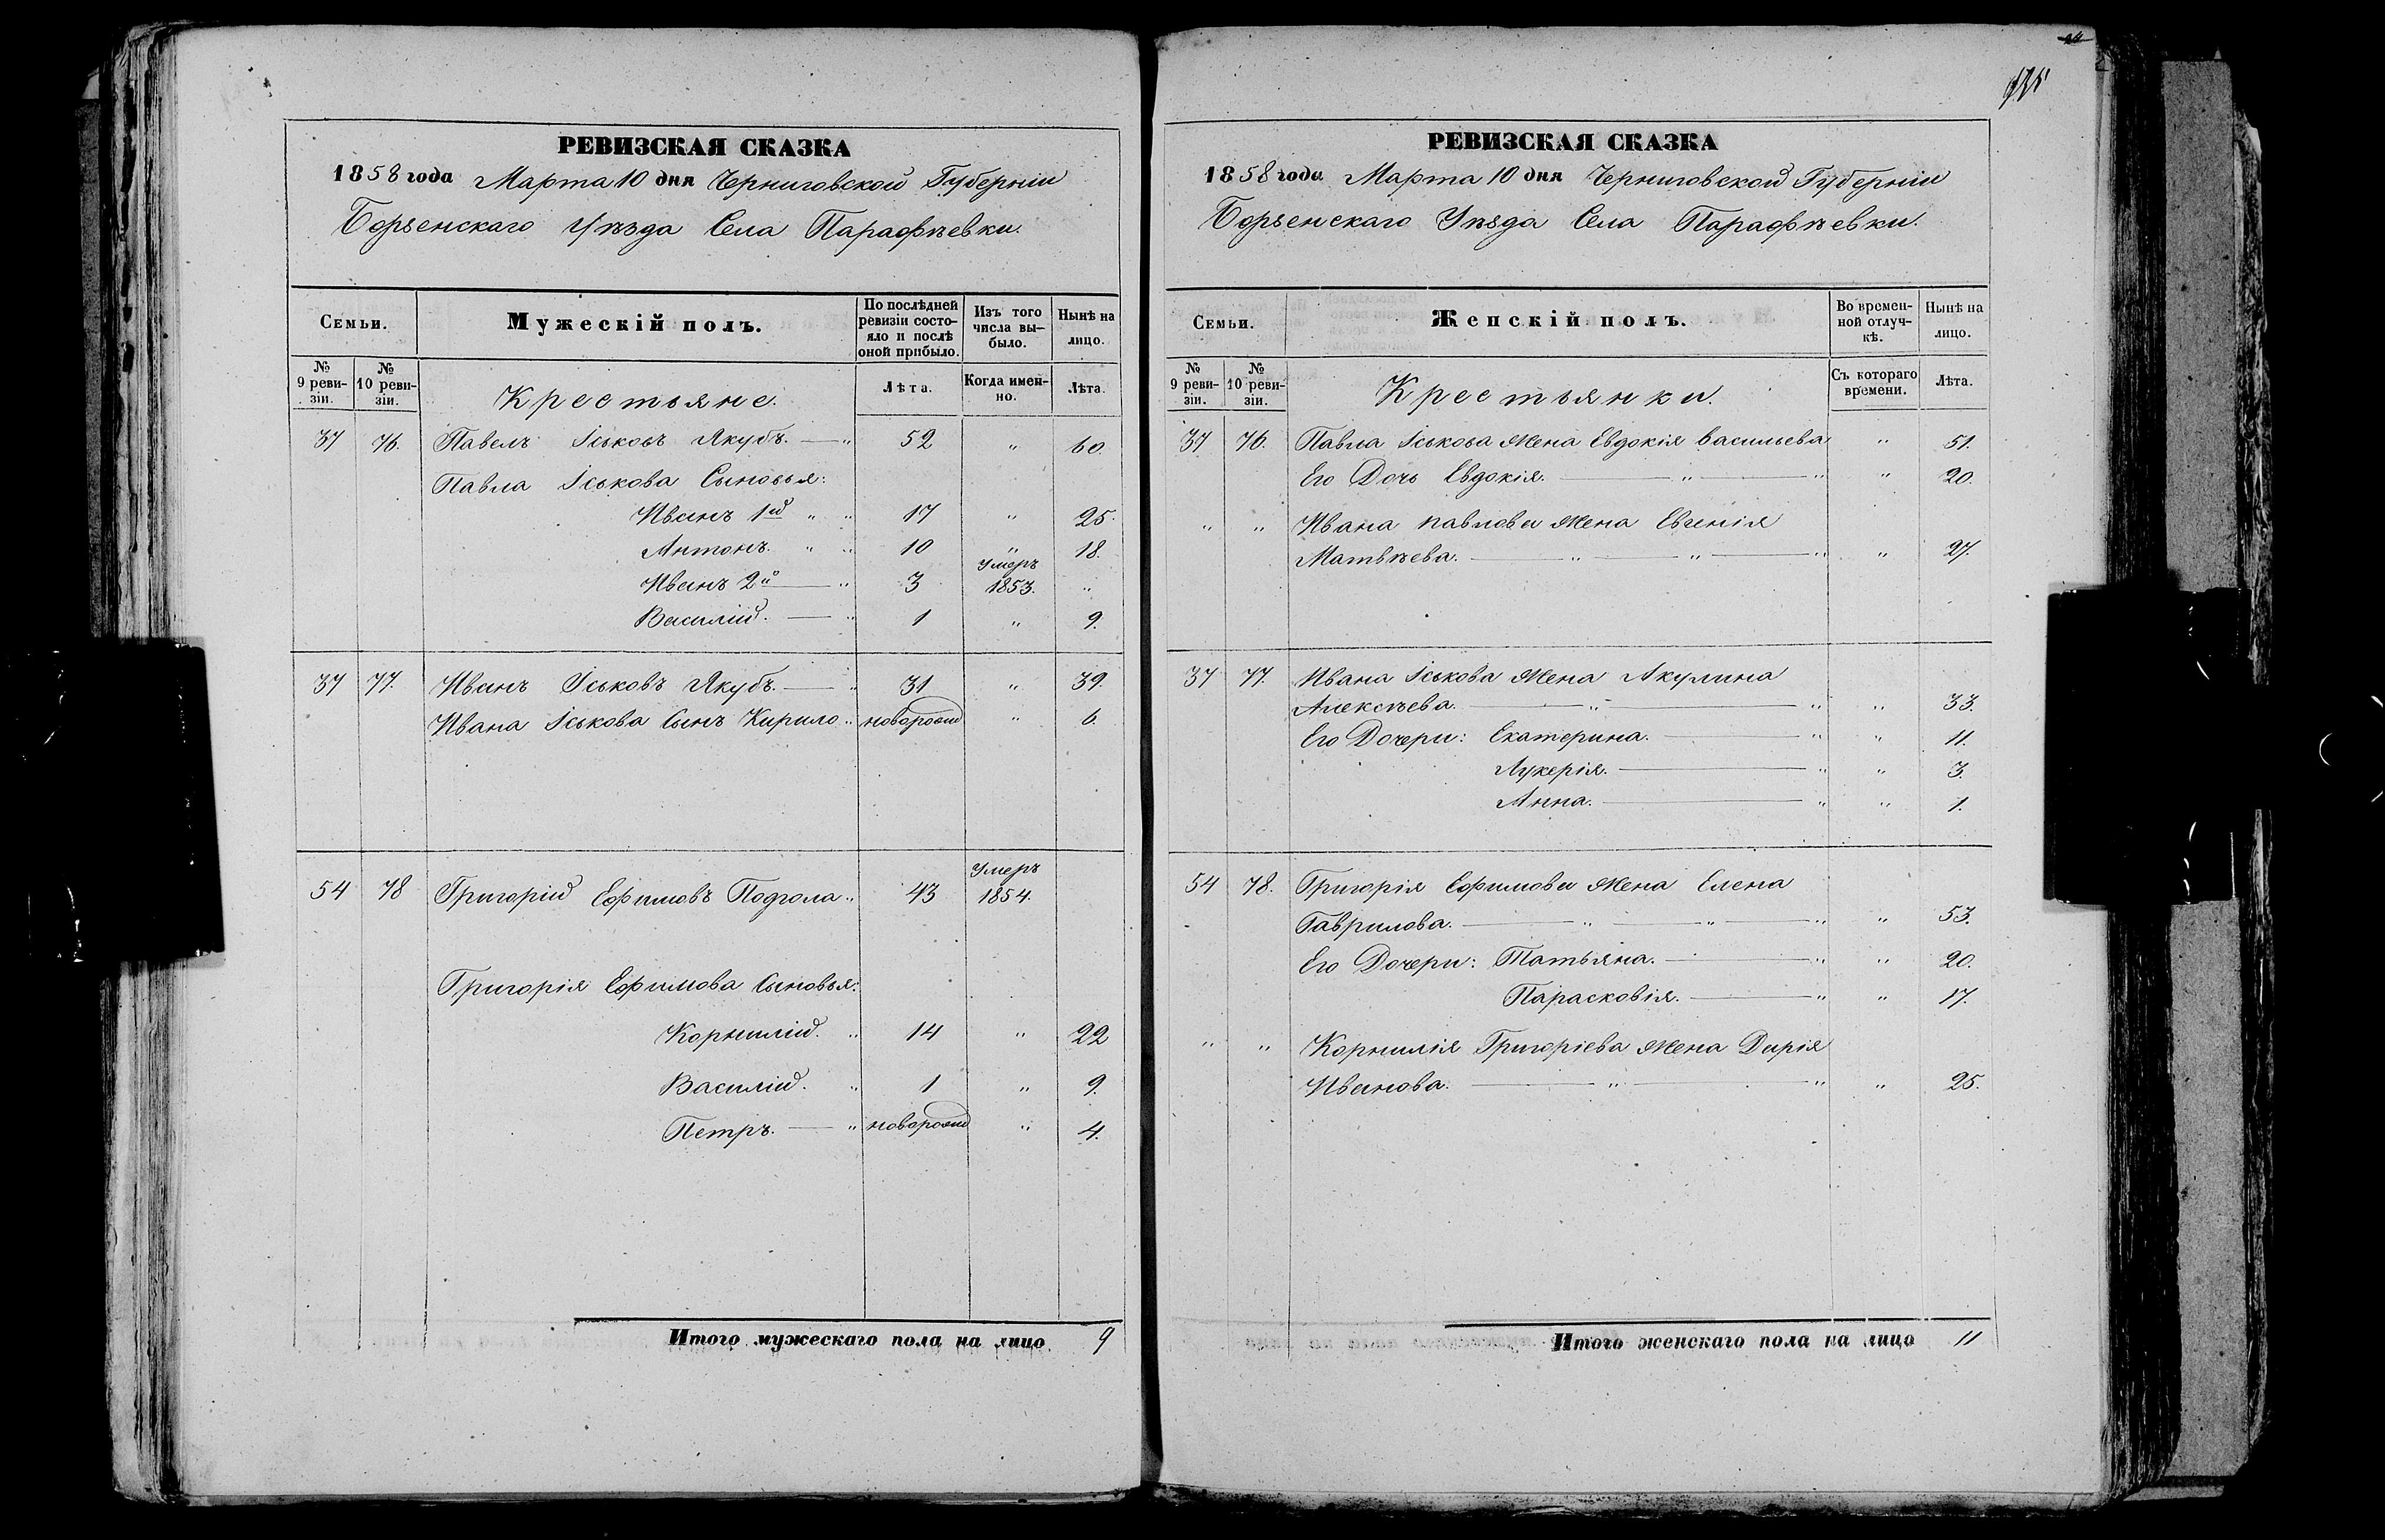 РЕВИЗСКАЯ СКАЗКА
1858 года Марта 10 дня Черниговской Губерніи
Борзенскаго Уѣзда Села Парафѣевки.
Семьи.
Мужескій полъ.
По послѣдней ревизіи состояло и послѣ оной прибыло.
Изъ того числа выбыло.
Нынѣ на лицо.
№ 9 ревизіи.
№ 10 ревизіи.
Крестьяне.
Лѣта.
Когда именно.
Лѣта.
37 76. Павелъ Іськовъ Якубъ. — " 52 " 60.
Павла Іськова Сыновья:
Иванъ 1й " " 17 " 25.
Антонъ. " " 10 " 18.
Иванъ 2й — " 3 Умеръ 1853. "
Василій. — " 1 " 9.
37 77. Иванъ Іськовъ Якубъ. — " 31 " 39.
Ивана Іськова Сынъ Кирило " новорожд " 6.
54 78 Григорій Ефимовъ Подгола " 43 Умеръ 1854.
Григорія Ефимова Сыновья:
Корнилій. " 14 " 22
Василій. " 1 " 9.
Петръ. — " новорожд " 4.
Итого мужескаго пола на лицо 9
РЕВИЗСКАЯ СКАЗКА
1858 года Марта 10 дня Черниговской Губерніи
Борзенскаго Уѣзда Села Парафѣевки.
Семьи.
Женскій полъ.
Во временной отлучкѣ.
Нынѣ на лицо.
№ 9 ревизіи.
№ 10 ревизіи.
Крестьянки.
Съ котораго времени.
Лѣта.
37 76. Павла Іськова Жена Евдокія Васильева " 51.
Его Дочь Евдокія. — " — " " 20.
" " Ивана Павлова Жена Евгенія
Матвѣева. — " — " — " " 27.
37 77. Ивана Іськова Жена Акулина
Алексѣева. — " — " " 33.
Его Дочери: Екатерина. — " " 11.
Лукерія. — " " 3.
Анна. — " " 1.
54 78. Григорія Ефимова Жена Елена
Гаврилова. — " — " — " " 53.
Его Дочери: Татьяна. — " " 20.
Парасковія. — " " 17.
" " Корнилія Григоріева Жена Дарія
Иванова. — " — " " 25.
Итого женскаго пола на лицо 11